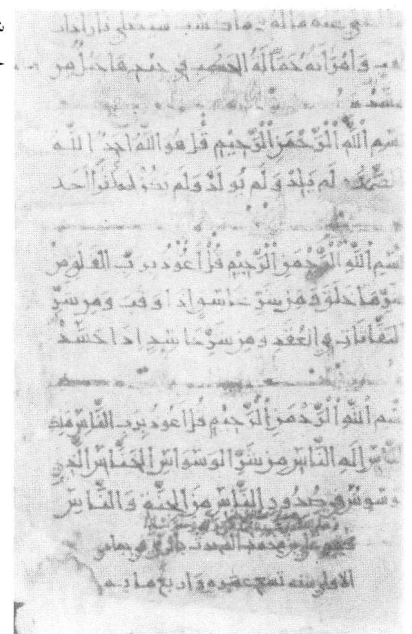 عنه ماله وما كسب سيصلى نارا ذات
لهب وَامْرَأَتُه حَمَّالَةُ الحطَبِ في جيدها حبل من
مسد
بسم اللَّهِ الرَّحْمَنِ الرَّحِيْمِ قُل هو اللَّه احد اللَّه
الصَّمَدُ لَم يَلِدْ وَلَم يُولَدْ وَلم يكن له كفوا احد
بِسْمِ اللَّهِ الرَّحْمَنِ الرَّحِيْمِ قُلْ اعُوْذُ بِرَبِّ الفلق مِنْ
شرّ ما خلق ومن شَرّ غاسق اذا وقب ومن شرّ
النفّاثات في العُقَدِ ومن شرّ حاسد اذا حَسَدَ
بسم اللَّهِ الرَّحْمَنِ الرَّحِيْمِ قُل اعُوذ بِرَبِّ النَّاسِ ملك
النَّاسِ الهِ النَّاسِ مِن شَرِّ الوَسْوَاسِ الخَنَّاسِ الَّذِي
يوسْوِسُ فِي صُدُورِ النَّاسِ مِنَ الجِنَّةِ وَالنَّاسِ
محمد في جمادى
الاولى سنه تسع عشره واربع مايه